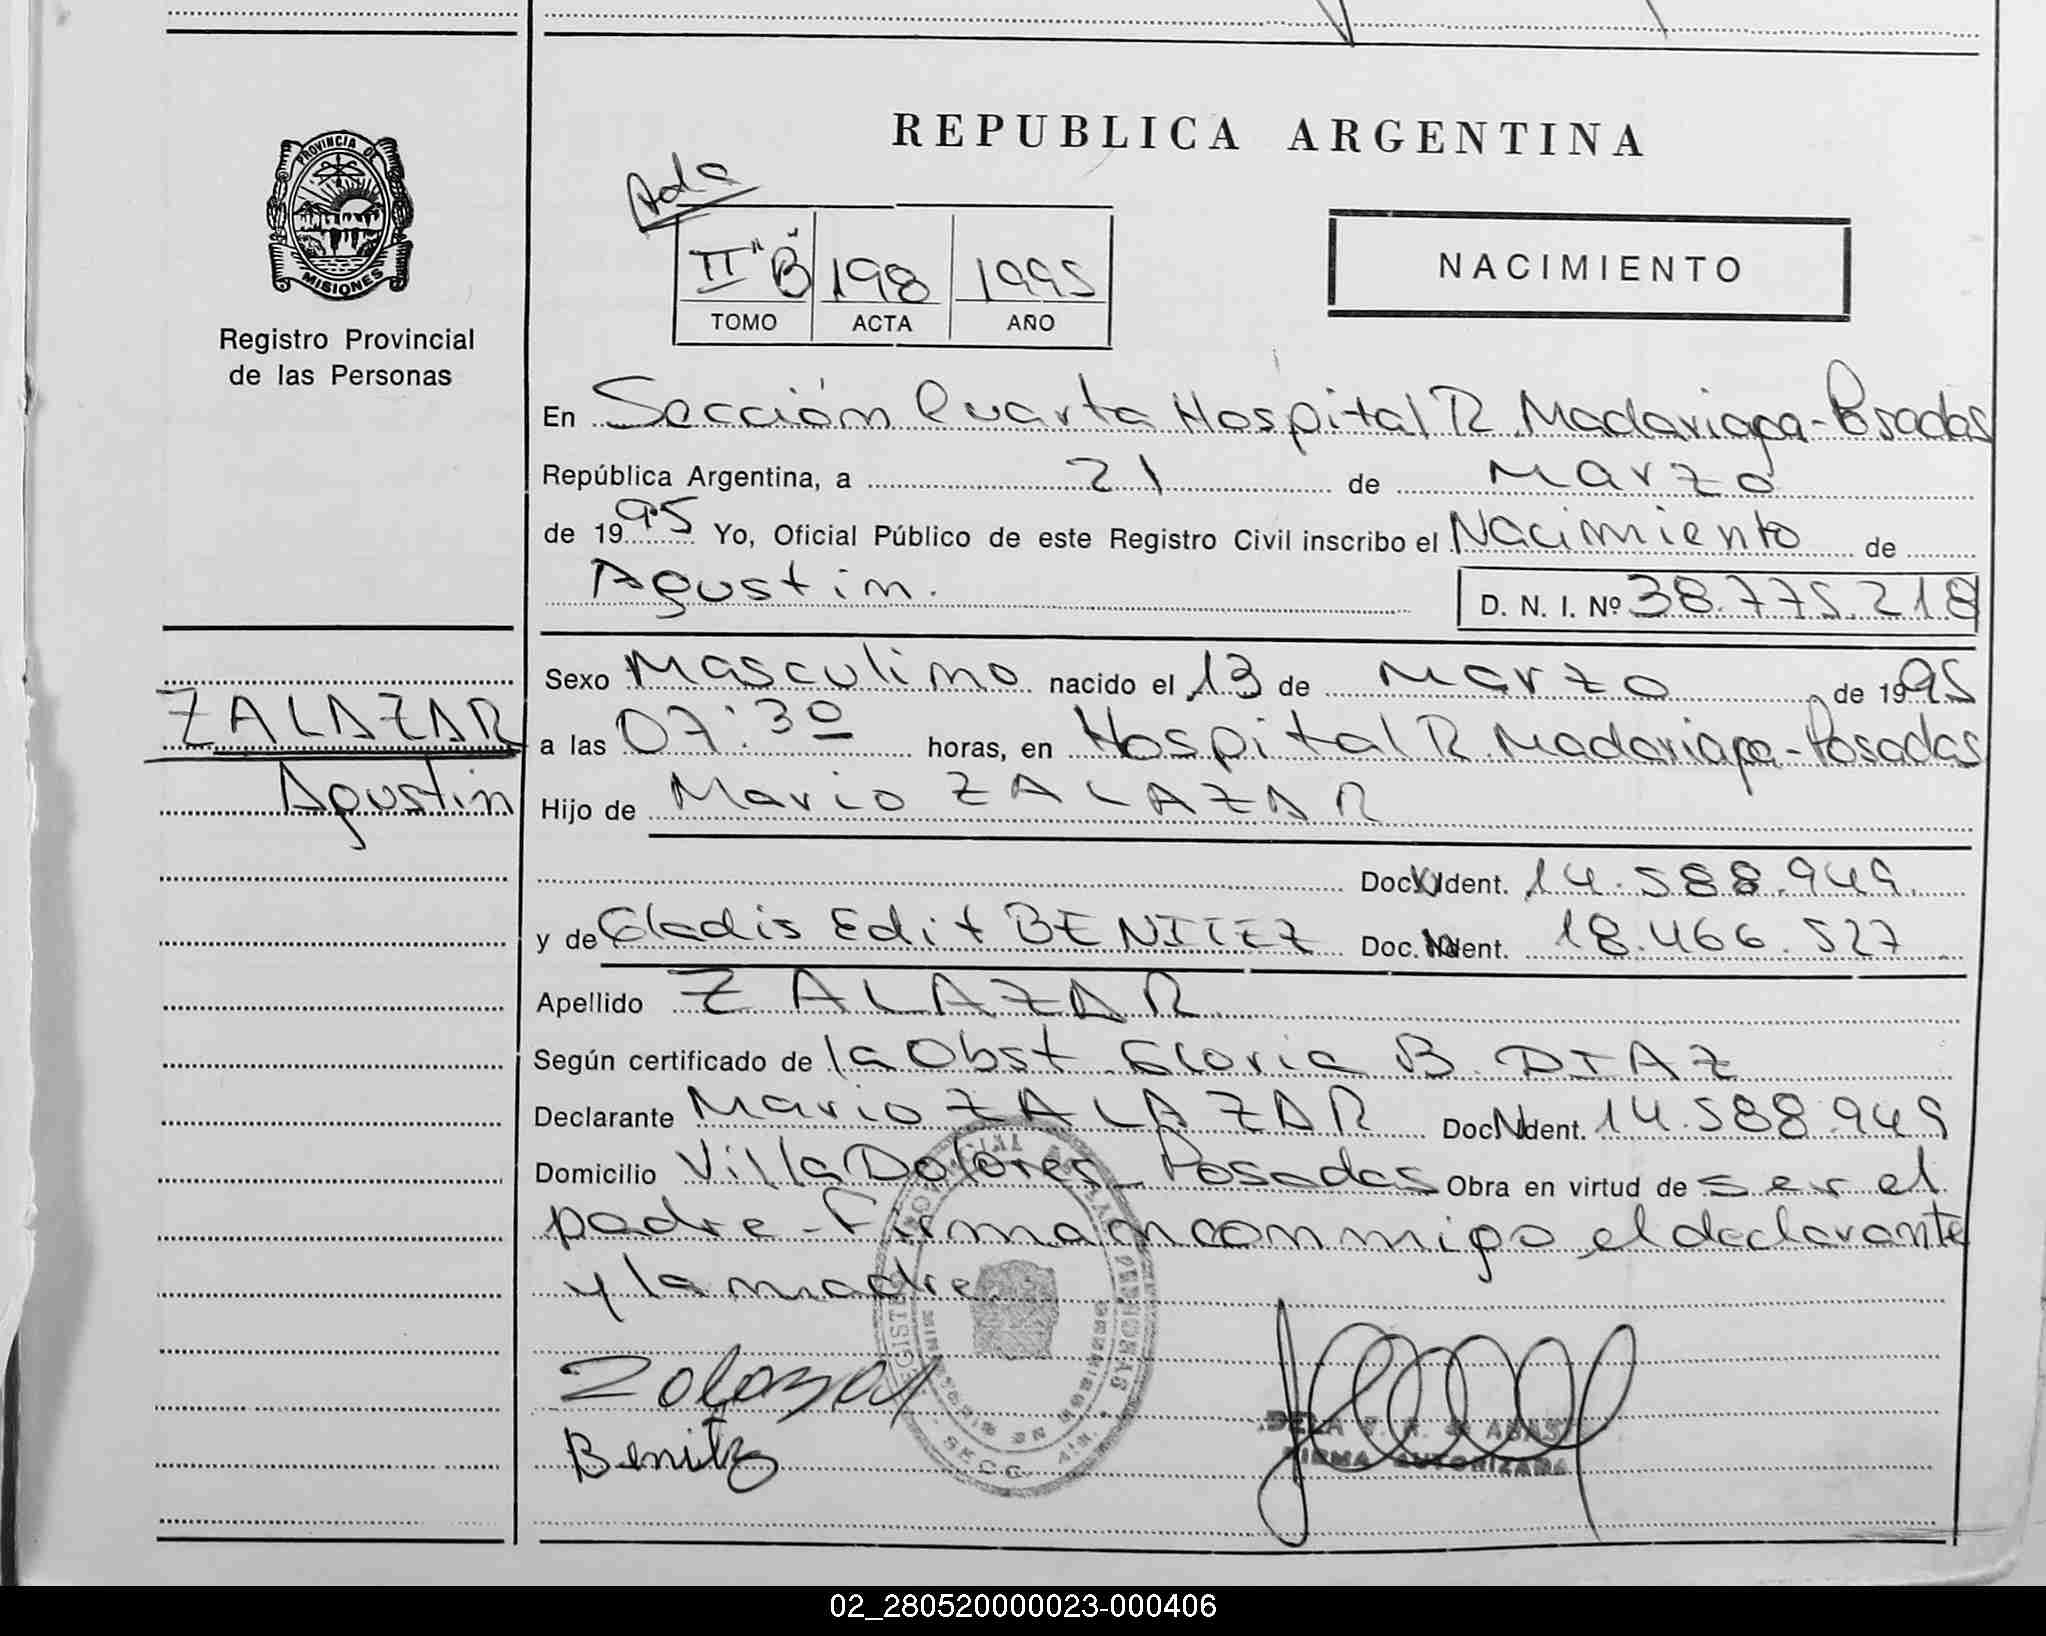 PROVINCIA DE
MISIONES
Registro Provincial
de las Personas
ZALAZAR
Agustin
REPUBLICA ARGENTINA
Ada
II "B" 198 1995
TOMO ACTA AÑO
NACIMIENTO
En Sección Cuarta Hospital R. Madariaga-Posadas
República Argentina, a 21 de Marzo
de 1995 Yo, Oficial Público de este Registro Civil inscribo el Nacimiento de
Agustin. D. N. I. Nº 38.775.218
Sexo Masculino nacido el 13 de Marzo de 1995
a las 07:30 horas, en Hospital R. Madariaga-Posadas
Hijo de Mario ZALAZAR
Doc. Ident. 14.588.949
y de Gladis Edit BENITEZ Doc. Ident. 18.466.527
Apellido ZALAZAR
Según certificado de la Obst. Gloria B. DIAZ
Declarante Mario ZALAZAR Doc. Ident. 14.588.949
Domicilio Villa Dolores - Posadas Obra en virtud de ser el
padre - Firman conmigo el declarante
y la madre
Zalazar
Benitez
FIRMA AUTORIZADA
02_280520000023-000406